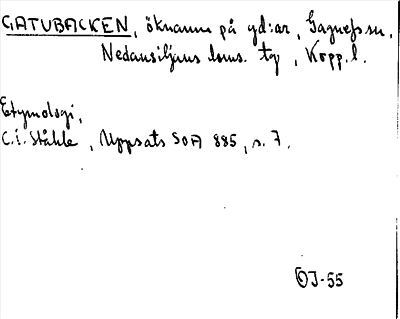 GATUBACKEN, öknamn på gd:ar, Gagnefs sn,
Nedansiljans doms. tg, Kopp. l.
Etymologi,
C.I. Ståhle, Uppsats SOA 885, s. 7.
OJ-55